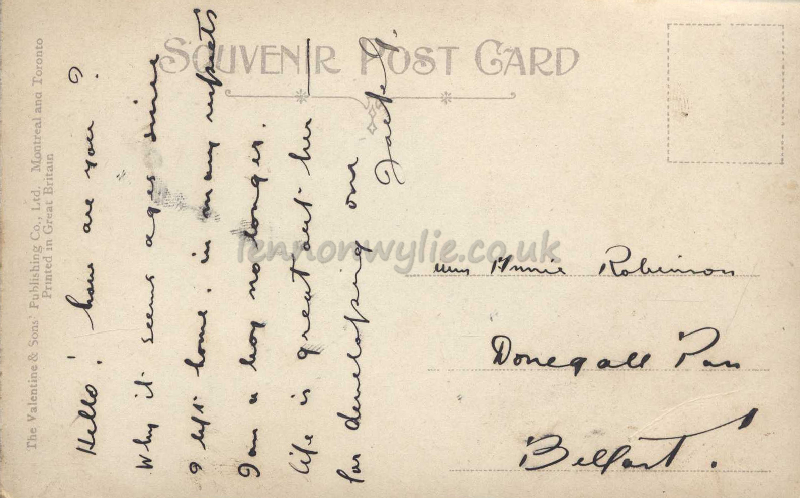 SOUVENIR POST CARD
The Valentine & Sons' Publishing Co., Ltd. Montreal and Toronto
Printed in Great Britain
Hello! how are you?
Why it seems ages since
I left home. in many respects
I am a boy no longer.
life is great out her —
for developing one
lennonwylie.co.uk
Miss Annie Robinson
Donegall Pass
Belfast!